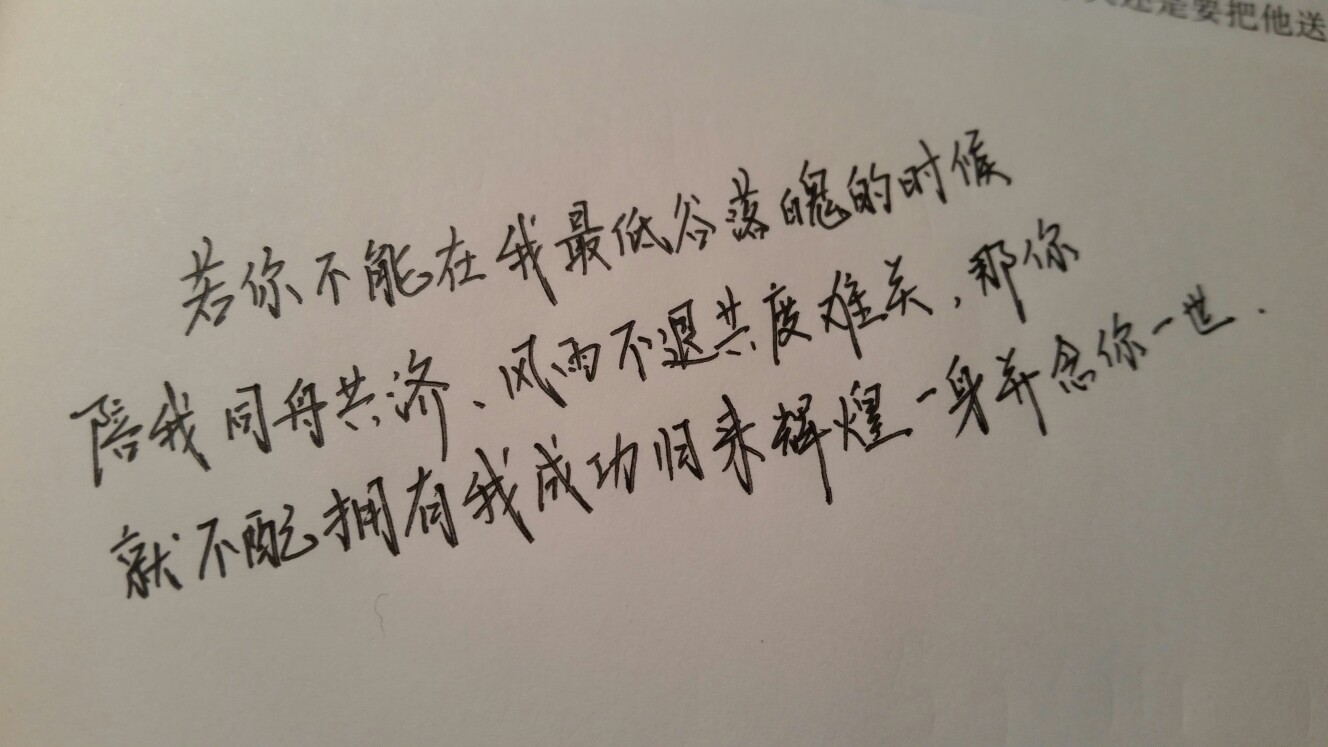 还是要把他送
若你不能在我最低谷落魄的时候
陪我同舟共济、风雨不退共度难关，那你
就不配拥有我成功归来辉煌一身并念你一世.